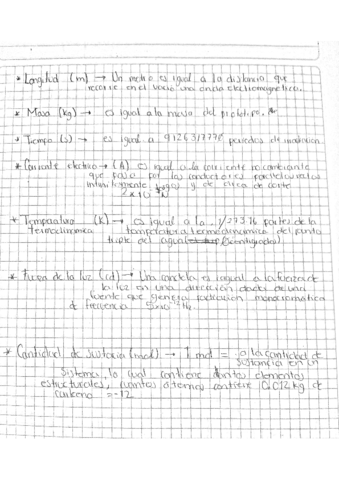 * Longitud (m) → Un metro es igual a la distancia que
recorre en el vacío una onda electromagnética.
* Masa (kg) → es igual a la masa del prototipo.
* Tiempo (s) → es igual a 9126317770 periodos de
* Corriente electrica → (A) es igual a la corriente
que pasa por los conductores paralelos
infinitamente largos y de
2 x 10⁻⁷ N
* Temperatura (K) → es igual a la 1/273.16 partes de la
termodinámica temperatura termodinámica del punto
triple del agua (Centigrados)
* Fuerza de la luz (cd) → Una candela es igual a la fuerza de
la luz en una dirección dada de una
fuente que genera radiación monocromática
de frecuencia
* Cantidad de sustancia (mol) → 1 mol = a la cantidad de
sustancia en un
sistema, lo cual contiene elementos
estructurales, cuantos atomos contiene 0.012 kg de
carbono -12